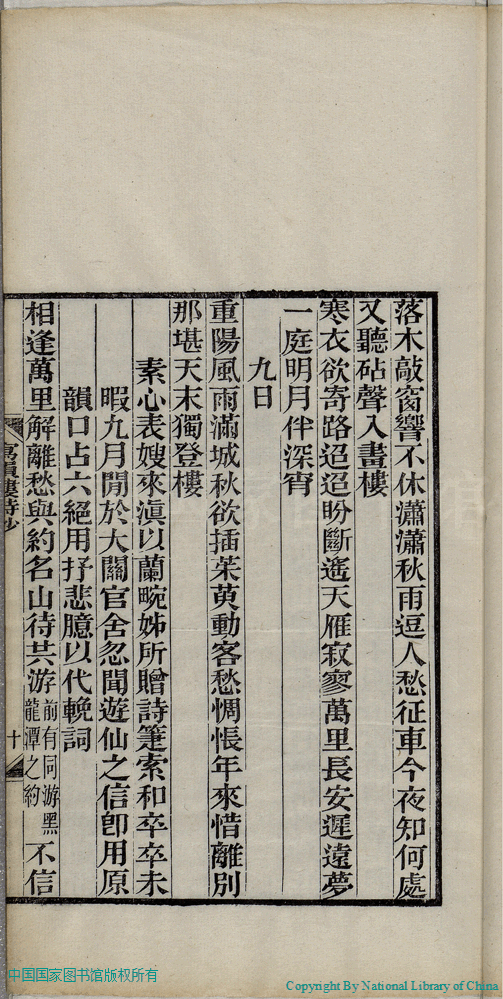 落木敲窗響不休瀟瀟秋雨逗人愁征車今夜知何處
又聽砧聲入畫樓
寒衣欲寄路迢迢盼斷遙天雁寂寥萬里長安遲遠夢
一庭明月伴深宵
九日
重陽風雨滿城秋欲插茱萸動客愁惆悵年來惜離別
那堪天末獨登樓
素心表嫂來滇以蘭畹姊所贈詩箑索和卒卒未
暇九月閒於大關官舍忽聞遊仙之信卽用原
韻口占六絕用抒悲臆以代輓詞
相逢萬里解離愁與約名山待共游前有同游黑龍潭之約不信
樓詩鈔
十
中国国家图书馆版权所有
Copyright By National Library of China